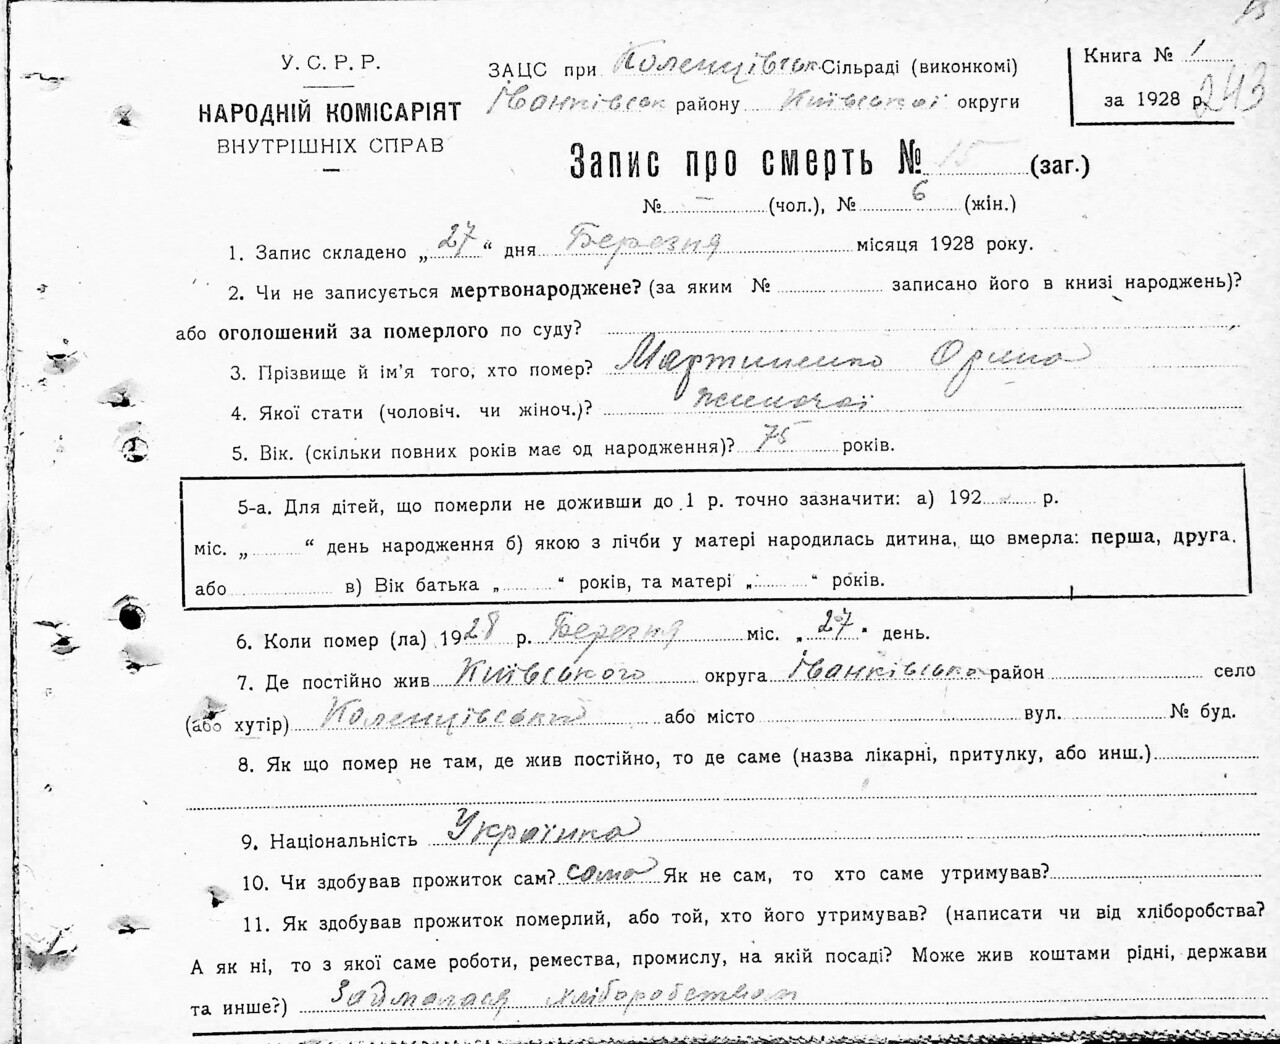 У. С. Р. Р.
НАРОДНІЙ КОМІСАРІЯТ
ВНУТРІШНІХ СПРАВ
ЗАЦС при Коленцівськ Сільраді (виконкомі)
Іванківськ району Київської округи
Книга № 1
за 1928 р. 243
Запис про смерть № 15 (заг.)
№ – (чол.), № 6 (жін.)
1. Запис складено „27“ дня Березня місяця 1928 року.
2. Чи не записується мертвонароджене? (за яким № записано його в книзі народжень)?
або оголошений за померлого по суду?
3. Прізвище й ім’я того, хто помер? Мартиненко Орина
4. Якої стати (чоловіч. чи жіноч.)? жиночої
5. Вік. (скільки повних років має од народження)? 75 років.
5-а. Для дітей, що померли не доживши до 1 р. точно зазначити: а) 192 р.
міс. „ “ день народження б) якою з лічби у матері народилась дитина, що вмерла: перша, друга.
або в) Вік батька „ “ років, та матері „ “ років.
6. Коли помер (ла) 1928 р. Березня міс. „27“ день.
7. Де постійно жив Київського округа Іванківсько район село
(або хутір) Коленцівський або місто вул. № буд.
8. Як що помер не там, де жив постійно, то де саме (назва лікарні, притулку, або инш.)
9. Національність Українка
10. Чи здобував прожиток сам? сама Як не сам, то хто саме утримував?
11. Як здобував прожиток померлий, або той, хто його утримував? (написати чи від хліборобства?
А як ні, то з якої саме роботи, ремества, промислу, на якій посаді? Може жив коштами рідні, держави
та инше?) Займалася хліборобством